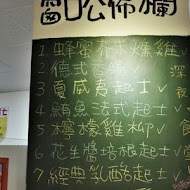 窗口公佈欄
1 蜂蜜芥末燻雞
2 德式香腸
3 夏威夷起士✓
4 鮪魚法式起士✓
5 檸檬雞柳✓
6 花生醬培根起士✓
7 經典乳酪起士
深
夜
食